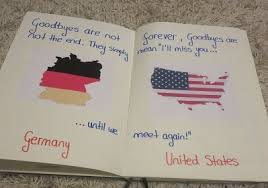 Goodbyes are not
not the end. They simply
... until we
Germany
forever, Goodbyes are
mean "I'll miss you...
meet again!"
United States